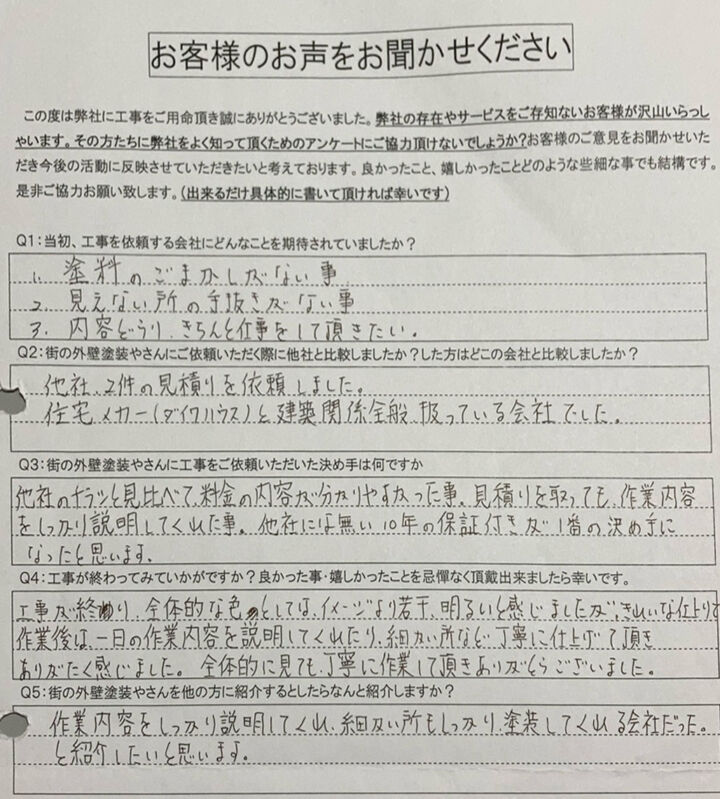 お客様のお声をお聞かせください
この度は弊社に工事をご用命頂き誠にありがとうございました。弊社の存在やサービスをご存知ないお客様が沢山いらっし
ゃいます。その方たちに弊社をよく知って頂くためのアンケートにご協力頂けないでしょうか?お客様のご意見をお聞かせいた
だき今後の活動に反映させていただきたいと考えております。良かったこと、嬉しかったことどのような些細な事でも結構です。
是非ご協力お願い致します。(出来るだけ具体的に書いて頂ければ幸いです)
Q1:当初、工事を依頼する会社にどんなことを期待されていましたか?
1. 塗料のごまかしがない事
2. 見えない所の手抜きがない事
3. 内容どうり、きちんと仕事をして頂きたい。
Q2:街の外壁塗装やさんにご依頼いただく際に他社と比較しましたか?した方はどこの会社と比較しましたか?
他社、2件の見積りを依頼しました。
住宅メカー(ダイワハウス)と建築関係全般、扱っている会社でした。
Q3:街の外壁塗装やさんに工事をご依頼いただいた決め手は何ですか
他社のチラシと見比べて、料金の内容が分かりやすかった事。見積りを取っても、作業内容
をしっかり説明してくれた事。他社には無い10年の保証付きが1番の決め手に
なったと思います。
Q4:工事が終わってみていかがですか?良かった事・嬉しかったことを忌憚なく頂戴出来ましたら幸いです。
工事が終わり、全体的な色としては、イメージより若干、明るいと感じましたが、きれいな仕上りで
作業後は、一日の作業内容を説明してくれたり、細かい所など、丁寧に仕上げて頂き
ありがたく感じました。全体的に見ても、丁寧に作業して頂きありがとうございました。
Q5:街の外壁塗装やさんを他の方に紹介するとしたらなんと紹介しますか?
作業内容をしっかり説明してくれ、細かい所もしっかり、塗装してくれる会社だった。
と紹介したいと思います。